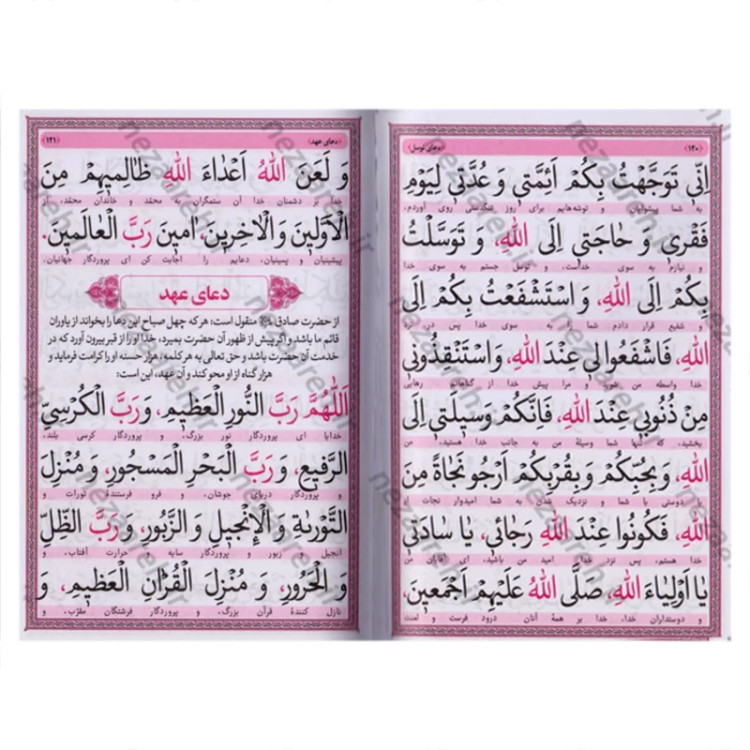 ﴿۱۲۰﴾ ﴿دعای توسل﴾
اِنّی تَوَجَّهْتُ بِکُمْ اَئِمَّتی وَ عُدَّتی لِیَوْمِ
به شما پیشوایان و توشه‌هایم برای روز تنگدستی روی آوردم،
فَقْری وَ حاجَتی اِلَی اللهِ، وَ تَوَسَّلْتُ
و نیازم به سوی خداست، و توسل جستم به سوی خدا
بِکُمْ اِلَی اللهِ، وَ اسْتَشْفَعْتُ بِکُمْ اِلَی
و شفیع قرار دادم شما را به سوی خدا پس در نزد
اللهِ، فَاشْفَعُوا لی عِنْدَ اللهِ، وَاسْتَنْقِذُونی
خدا واسطه من شوید و مرا پیش خدا از گناهانم رهایی
مِنْ ذُنُوبی عِنْدَ اللهِ، فَاِنَّکُمْ وَسیلَتی اِلَی
بخشید، که تنها شما وسیلهٔ من به جانب خدا هستید، من
اللهِ، وَ بِحُبِّکُمْ وَ بِقُرْبِکُمْ اَرْجُو نَجاةً مِنَ
به دوستی با شما و نزدیک شدن به شما امیدوار نجات از
اللهِ، فَکُونُوا عِنْدَ اللهِ رَجائی، یا سادَتی
خدا هستم، پس نزد خدا امید من باشید، ای آقایان من
یا اَوْلِیاءَ اللهِ، صَلَّی اللهُ عَلَیْهِمْ اَجْمَعینَ،
و دوستداران خدا، خدا بر همهٔ آنان درود فرست و لعنت
﴿دعای عهد﴾ ﴿۱۲۱﴾
وَ لَعَنَ اللهُ اَعْداءَ اللهِ ظالِمیهِمْ مِنَ
خدا بر دشمنان خدا آن ستمگران به محمّد و خاندان محمّد، از
الْاَوَّلینَ وَ الْاخِرینَ، امینَ رَبَّ الْعالَمینَ.
پیشینیان و پسینیان، دعایم را اجابت کن ای پروردگار جهانیان.
دعای عهد
از حضرت صادق منقول است: هر که چهل صباح این دعا را بخواند از یاوران
قائم ما باشد و اگر پیش از ظهور آن حضرت بمیرد، خدا او را از قبر بیرون آورد که در
خدمت آن حضرت باشد و حق تعالی به هر کلمه، هزار حسنه او را کرامت فرماید و
هزار گناه از او محو کند و آن عهد، این است:
اَللّهُمَّ رَبَّ النُّورِ الْعَظیمِ، وَ رَبَّ الْکُرْسِیِّ
خدایا ای پروردگار نور بزرگ، و پروردگار کرسی بلند،
الرَّفیعِ، وَ رَبَّ الْبَحْرِ الْمَسْجُورِ، وَ مُنْزِلَ
و پروردگار دریای جوشان، و فرو فرستندهٔ تورات و
التَّوْریةِ وَ الْاِنْجیلِ وَ الزَّبُورِ، وَ رَبَّ الظِّلِّ
انجیل و زبور و پروردگار سایه و حرارت آفتاب، و
وَ الْحَرُورِ، وَ مُنْزِلَ الْقُرْانِ الْعَظیمِ، وَ
نازل کنندهٔ قرآن بزرگ، و پروردگار فرشتگان مقرّب، و
nezareh.ir